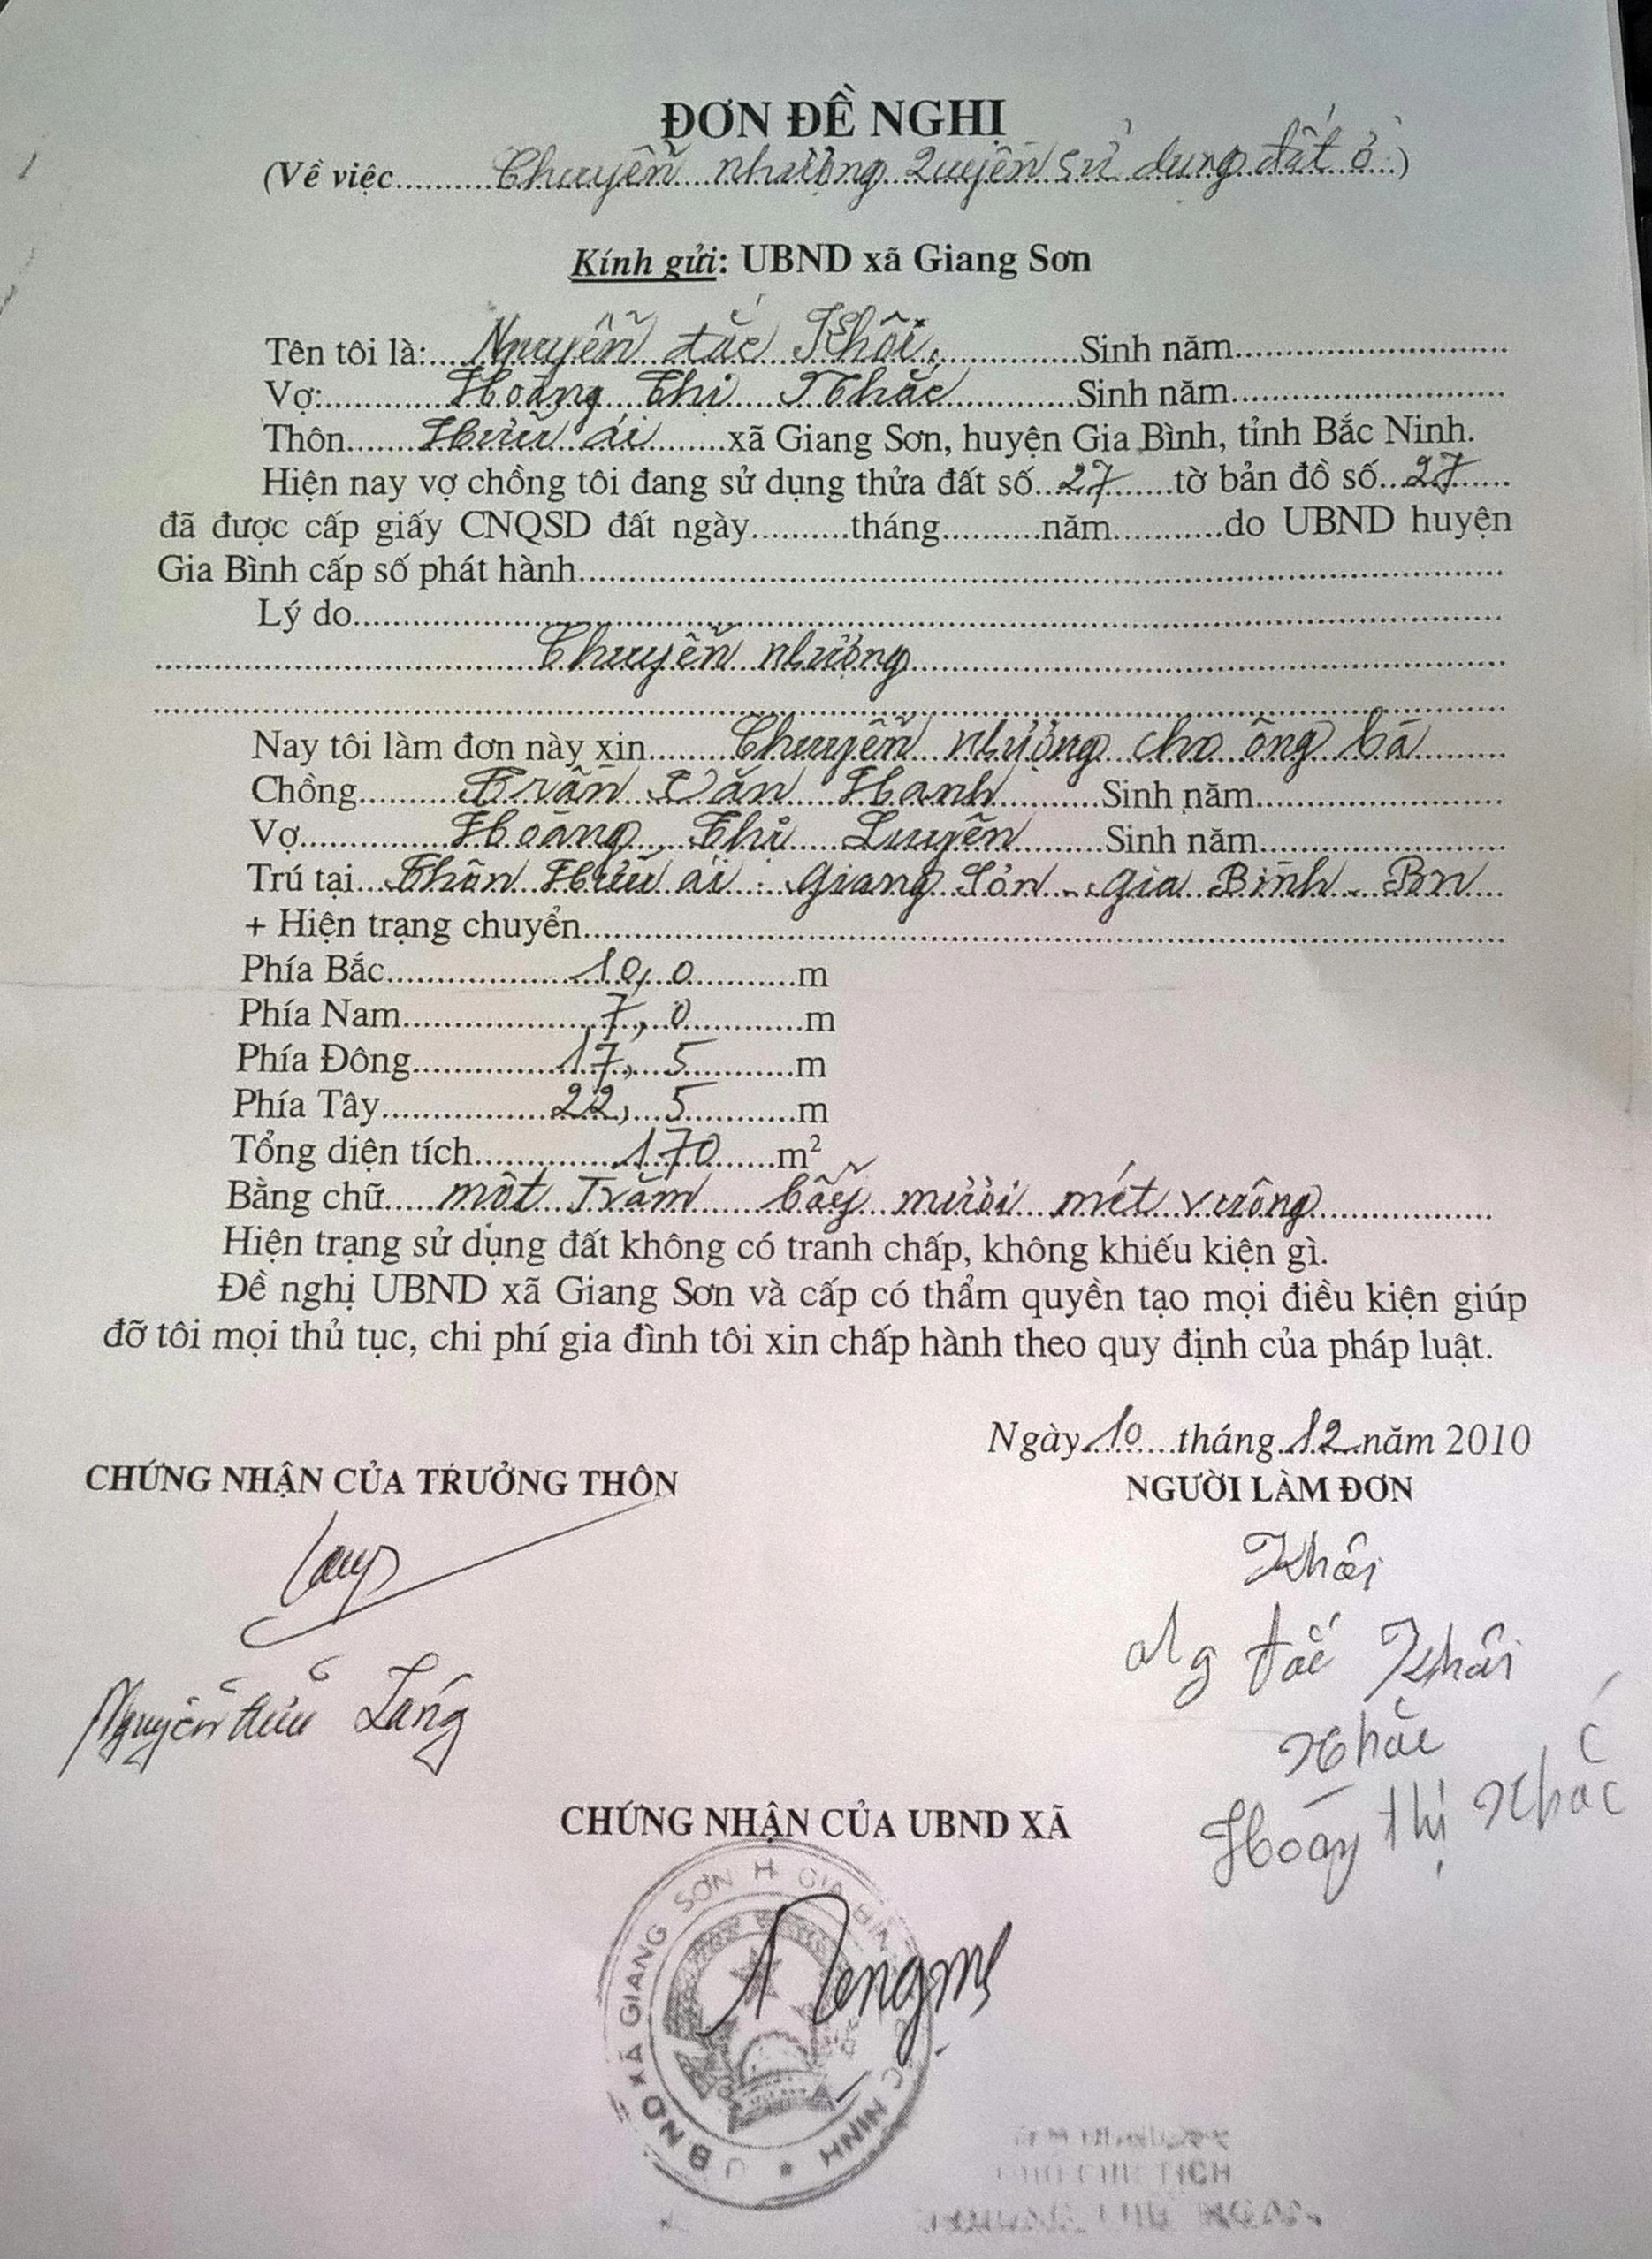 ĐƠN ĐỀ NGHỊ
(Về việc..........Chuyển nhượng quyền sử dụng đất ở..)
Kính gửi: UBND xã Giang Sơn
Tên tôi là:....Nguyễn đắc Khôi..............Sinh năm..............................
Vợ:............Hoàng Thị Nhắc.............Sinh năm..............................
Thôn.......Hữu ái........xã Giang Sơn, huyện Gia Bình, tỉnh Bắc Ninh.
Hiện nay vợ chồng tôi đang sử dụng thửa đất số...27.......tờ bản đồ số...27......
đã được cấp giấy CNQSD đất ngày..........tháng..........năm...........do UBND huyện
Gia Bình cấp số phát hành..............................
Lý do..............................
..............................Chuyển nhượng..............................
............................................................
Nay tôi làm đơn này xin.........Chuyển nhượng cho ông bà.........
Chồng..........Trần Văn Hanh..........Sinh năm.........................
Vợ...............Hoàng Thị Luyên.........Sinh năm.........................
Trú tại....Thôn Hữu ái - Giang Sơn - Gia Bình - BN...
+ Hiện trạng chuyển..............................
Phía Bắc....................10,0............m
Phía Nam.....................7,0............m
Phía Đông................17,5............m
Phía Tây..................22,5............m
Tổng diện tích...............170.......m²
Bằng chữ.....một Trăm bẩy mươi mét vuông..................
Hiện trạng sử dụng đất không có tranh chấp, không khiếu kiện gì.
Đề nghị UBND xã Giang Sơn và cấp có thẩm quyền tạo mọi điều kiện giúp
đỡ tôi mọi thủ tục, chi phí gia đình tôi xin chấp hành theo quy định của pháp luật.
Ngày..10....tháng..12..năm 2010
CHỨNG NHẬN CỦA TRƯỞNG THÔN
NGƯỜI LÀM ĐƠN
Khôi
Ng đắc Khôi
Nhắc
Hoàng Thị Nhắc
Nguyễn Hữu
CHỨNG NHẬN CỦA UBND XÃ
UBND XÃ GIANG SƠN H GIA BÌNH BẮC NINH
CHỦ TỊCH